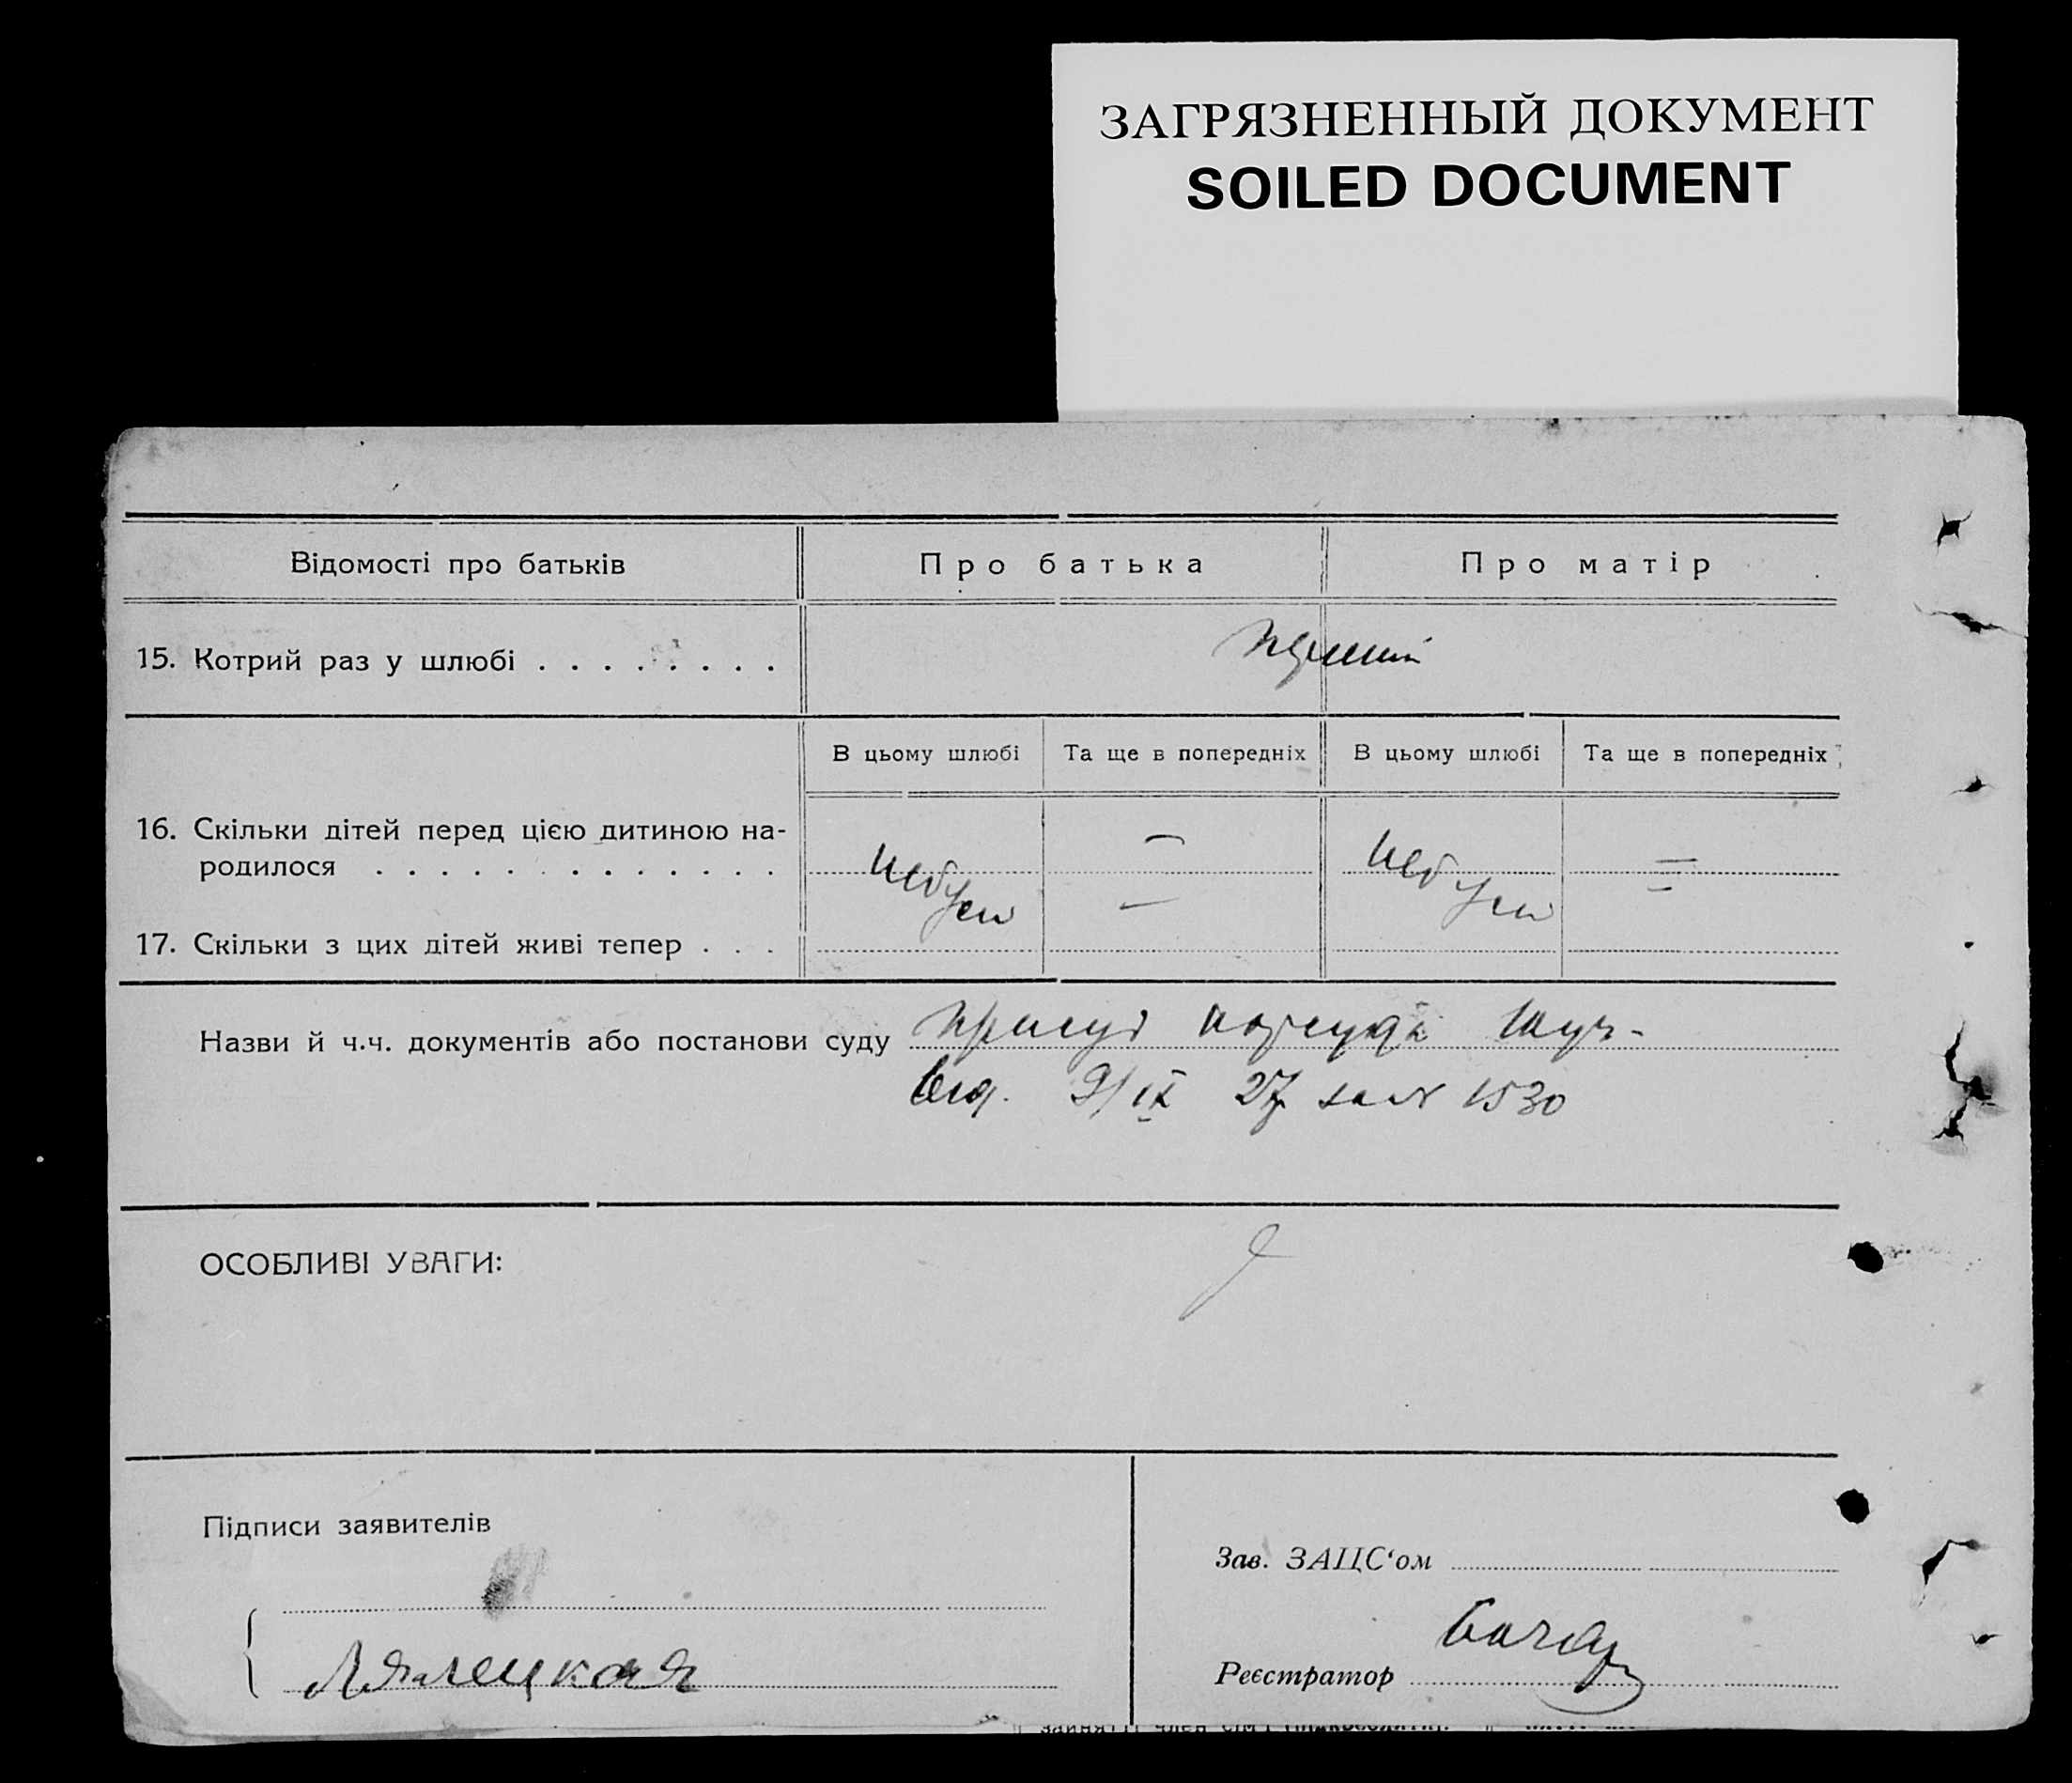 ЗАГРЯЗНЕННЫЙ ДОКУМЕНТ
SOILED DOCUMENT
Відомості про батьків Про батька Про матір
15. Котрий раз у шлюбі . . . . . . . .
В цьому шлюбі Та ще в попередніх В цьому шлюбі Та ще в попередніх
16. Скільки дітей перед цією дитиною на-
родилося . . . . . . . . . . . . .
17. Скільки з цих дітей живі тепер . . .
Назви й ч.ч. документів або постанови суду присуд
9/ІХ 27 1530
ОСОБЛИВІ УВАГИ:
Підписи заявителів
Зав. ЗАЦС‘ом
Лялецкая
Реєстратор